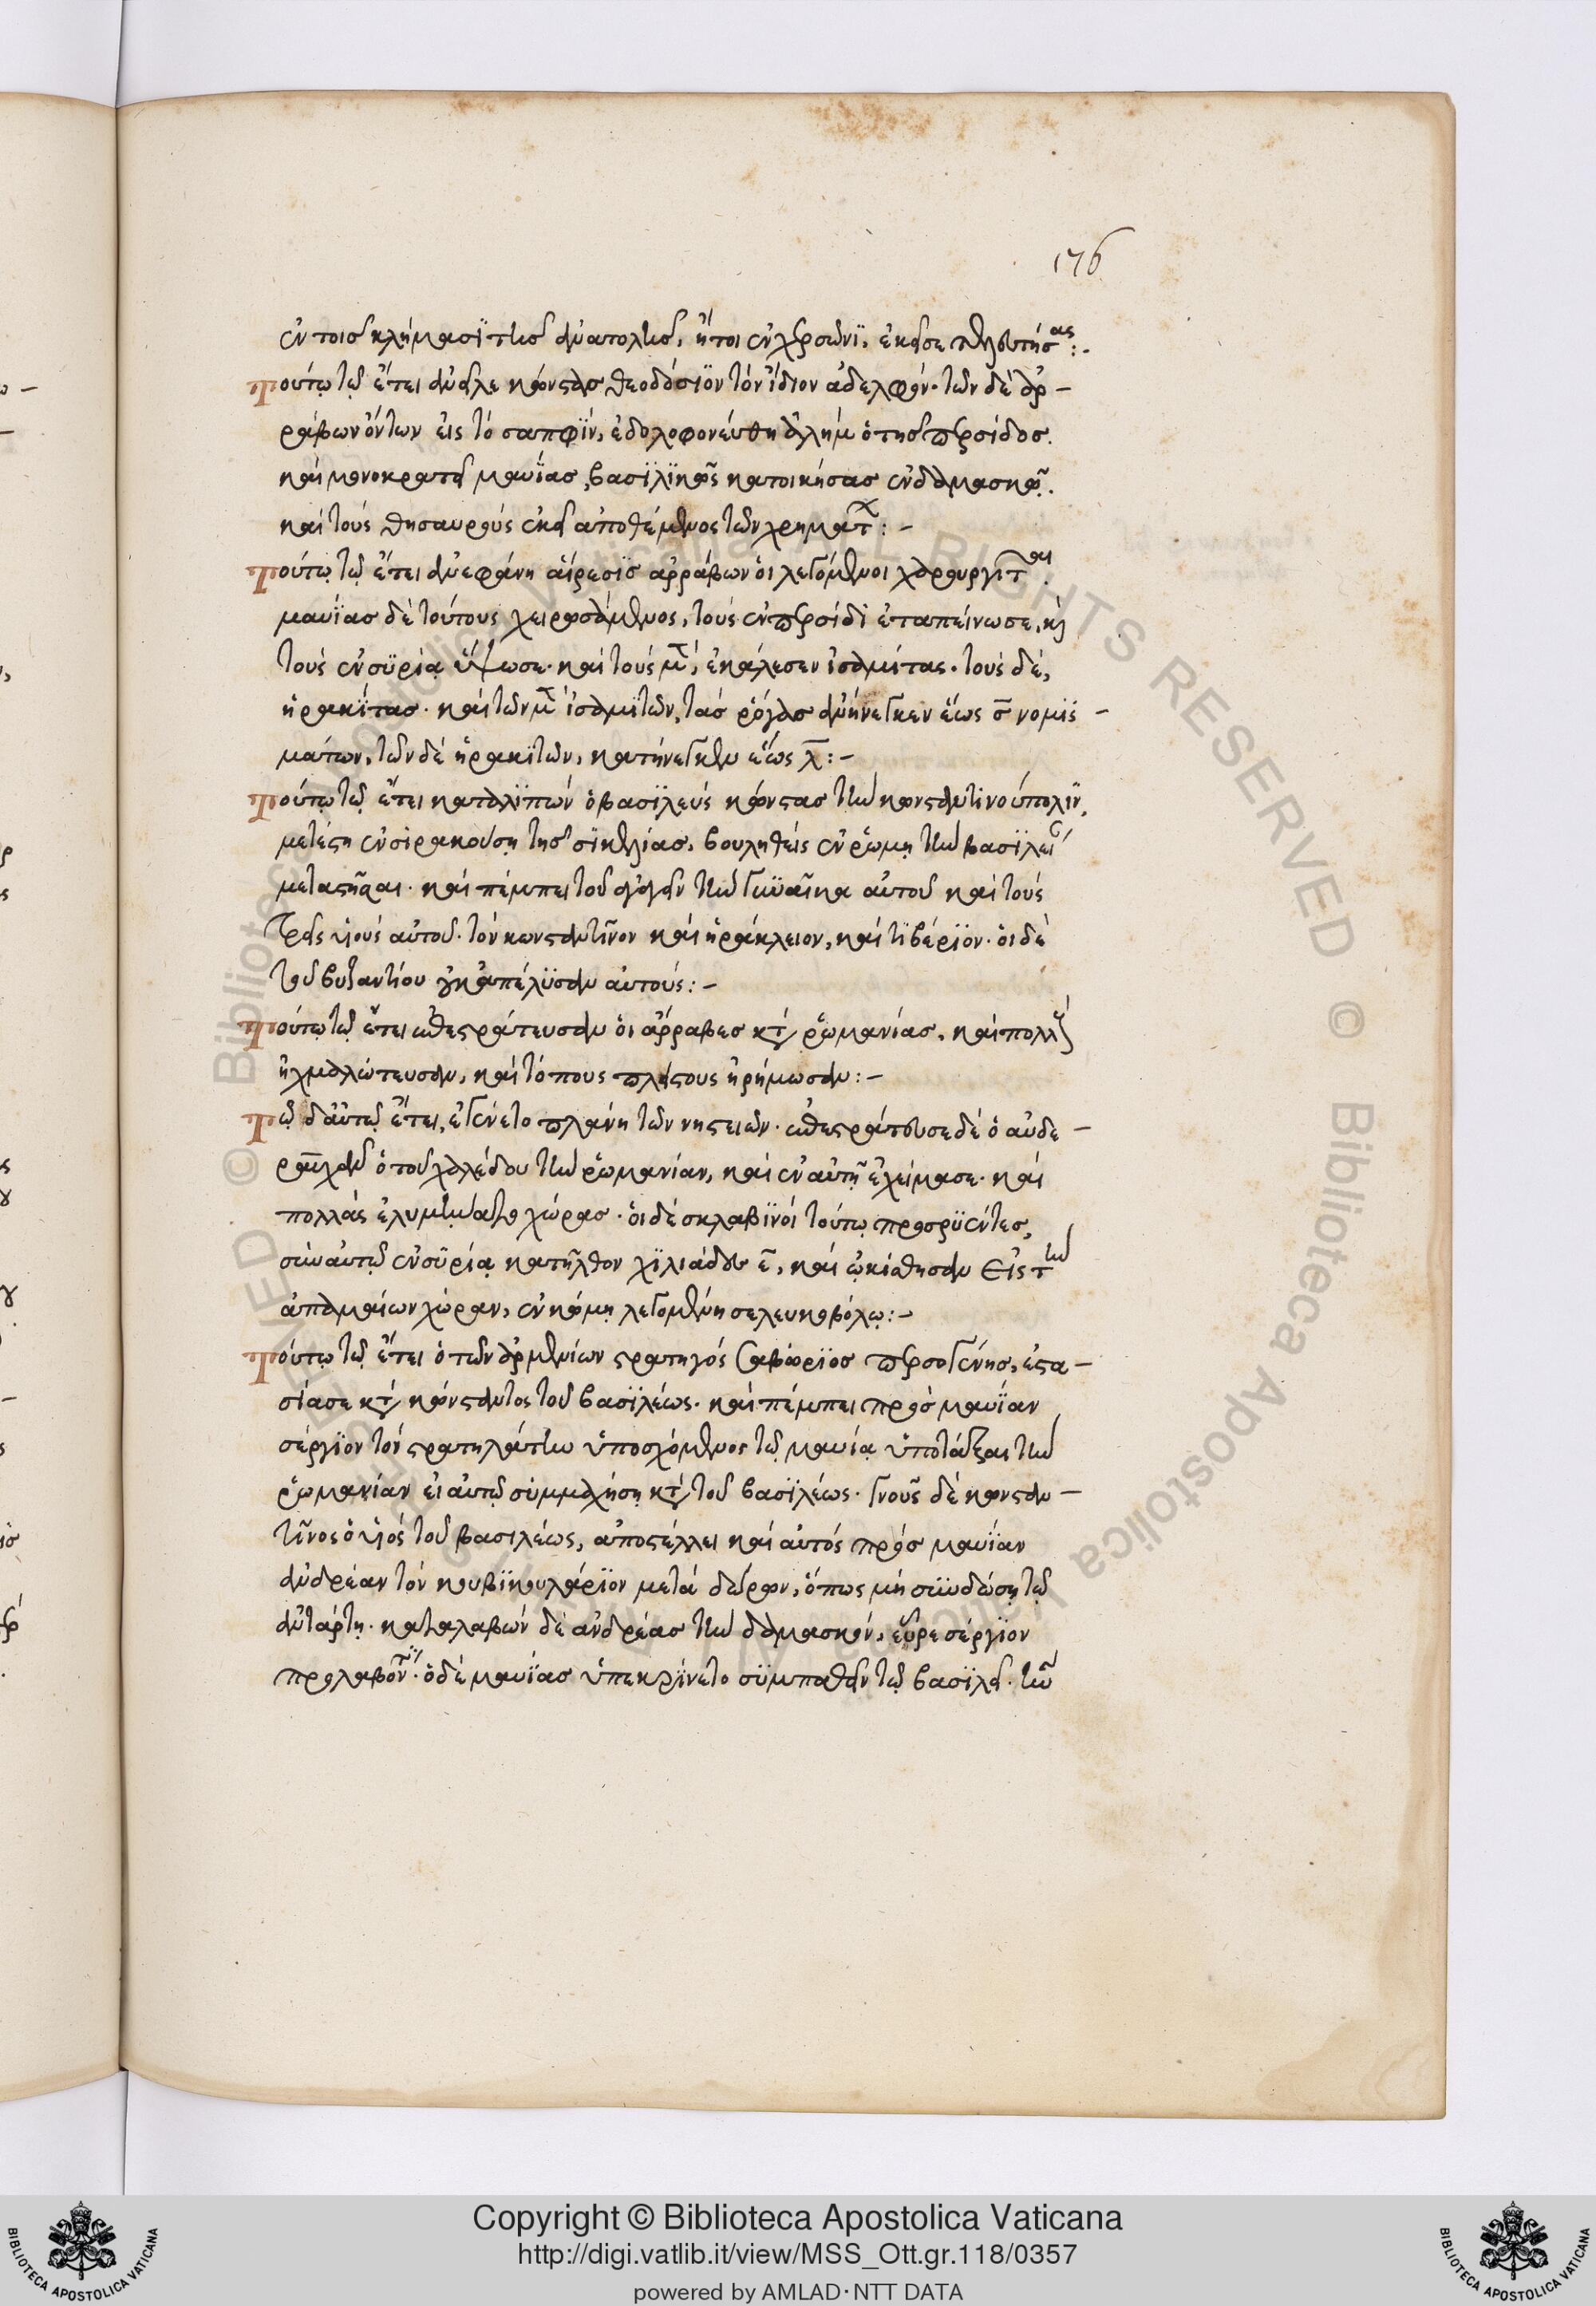 176
ἐν τοῖσ κλήμασϊ τῆσ ἀνατολῆσ, ἤτοι ἐν χερσῶνϊ, ἐκεῖσε τελευτήσας:.
Τούτῳ τῷ ἔτει ἀνεῖλε κώνστασ θεοδόσϊον τὸν ἴδιον ἀδελφόν. τῶν δὲ ἀρ–
ράβων ὄντων εἰς τὸ σαπφϊν, ἐδολοφονεύθη ἀλὴμ ὁ τῆσ περσίδοσ.
καὶ μονοκρατεῖ μαυΐασ, βασϊλϊκῶς κατοικήσασ ἐν δαμασκῷ.
καὶ τοὺς θησαυροὺς ἐκεῖ ἀποθέμενος τῶν χρημάτ:–
Τούτῳ τῷ ἔτει ἀνεφάνη αἵρεσϊσ ἀρράβων οἱ λεγόμενοι χαρουργῖται.
μαυΐασ δὲ τούτους χειρωσάμενος, τοὺς ἐν περσίδϊ ἐταπείνωσε, κỳ
τοὺς ἐν συρίᾳ ὕψωσε. καὶ τοὺς μ̅, ἐκάλεσεν ἰσαμίτας. τοὺς δὲ,
ἡρακίτασ. καὶ τῶν μ̅ ἰσαμϊτῶν, τὰσ ῥόγασ ἀνήνεγκεν ἕως σ̅ νομισ–
μάτων, τῶν δὲ ἡρακϊτῶν, κατήνεγκεν ἕως λ̅:–
Τούτῳ τῷ ἔτει καταλϊπὼν ὁ βασϊλεὺς κώνστασ τὴν κωνσταντινούπολϊν,
μετέστη ἐν σιρακούσῃ τῆσ σϊκελίασ, βουληθεὶς ἐν ῥώμῃ τὴν βασϊλεί
μεταστῆσαι. καὶ πέμπει τοῦ ἀγαγεῖν τὴν γυναῖκα αὐτοῦ καὶ τοὺς
τρεῖς υἱοὺς αὐτοῦ. τὸν κωνσταντῖνον καὶ ἡράκλειον, καὶ τϊβέρϊον. οἱ δὲ
τοῦ βυζαντίου οὐκ ἀπέλυσαν αὐτούς:–
Τούτῳ τῷ ἔτει ἐπεστράτευσαν οἱ ἄρραβεσ κατὰ ῥωμανίας. καὶ πολλοὺς
ἠχμαλώτευσαν, καὶ τόπους πλείστους ἠρήμωσαν:–
Τῷ δ' αὐτῷ ἔτει, ἐγένετο πλάνη τῶν νηστειῶν. ἐπεστράτευσε δὲ ὁ αὐδε–
ραμχὰν ὁ τοῦ χαλέδου τὴν ῥωμανίαν, καὶ ἐν αὐτῇ ἐχείμασε. καὶ
πολλὰς ἐλυμήνατο χώρασ. οἱ δὲ σκλαβϊνοὶ τούτῳ προσρυέντεσ,
σὺν αὐτῷ ἐν συρίᾳ κατῆλθον χϊλιάδες ε̅, καὶ ᾠκίσθησαν εἰς τὴν
ἀπαμαίων χώραν, ἐν κώμῃ λεγομένῃ σελευκοβόλῳ:–
Τούτῳ τῷ ἔτει ὁ τῶν ἀρμενίων στρατηγός σαβώρϊοσ περσογένησ, ἐστα–
σίασε κατὰ κώνσταντος τοῦ βασϊλέως. καὶ πέμπει πρὸσ μαυΐαν
σέργϊον τὸν στρατηλάτην ὑποσχόμενος τῷ μαυίᾳ ὑποτάξαι τὴν
ῥωμανίαν εἰ αὐτῷ συμμαχήσῃ κατὰ τοῦ βασϊλέως. γνοὺς δὲ κωνσταν–
τῖνος ὁ υἱὸς τοῦ βασιλέως, ἀποστέλλει καὶ αὐτὸς πρὸσ μαυΐαν
ἀνδρέαν τὸν κουβϊκουλάρϊον μετὰ δώρων, ὅπως μὴ συνδώσῃ τῷ
ἀντάρτῃ. καταλαβὼν δὲ ἀνδρέασ τὴν δαμασκὸν, εὗρε σέργϊον
προλαβόντ. ὁ δὲ μαυΐασ ὑπεκρίνετο συμπαθεῖν τῷ βασϊλεῖ. ἦν
Copyright © Biblioteca Apostolica Vaticana
http://digi.vatlib.it/view/MSS_Ott.gr.118/0357
powered by AMLAD·NTT DATA